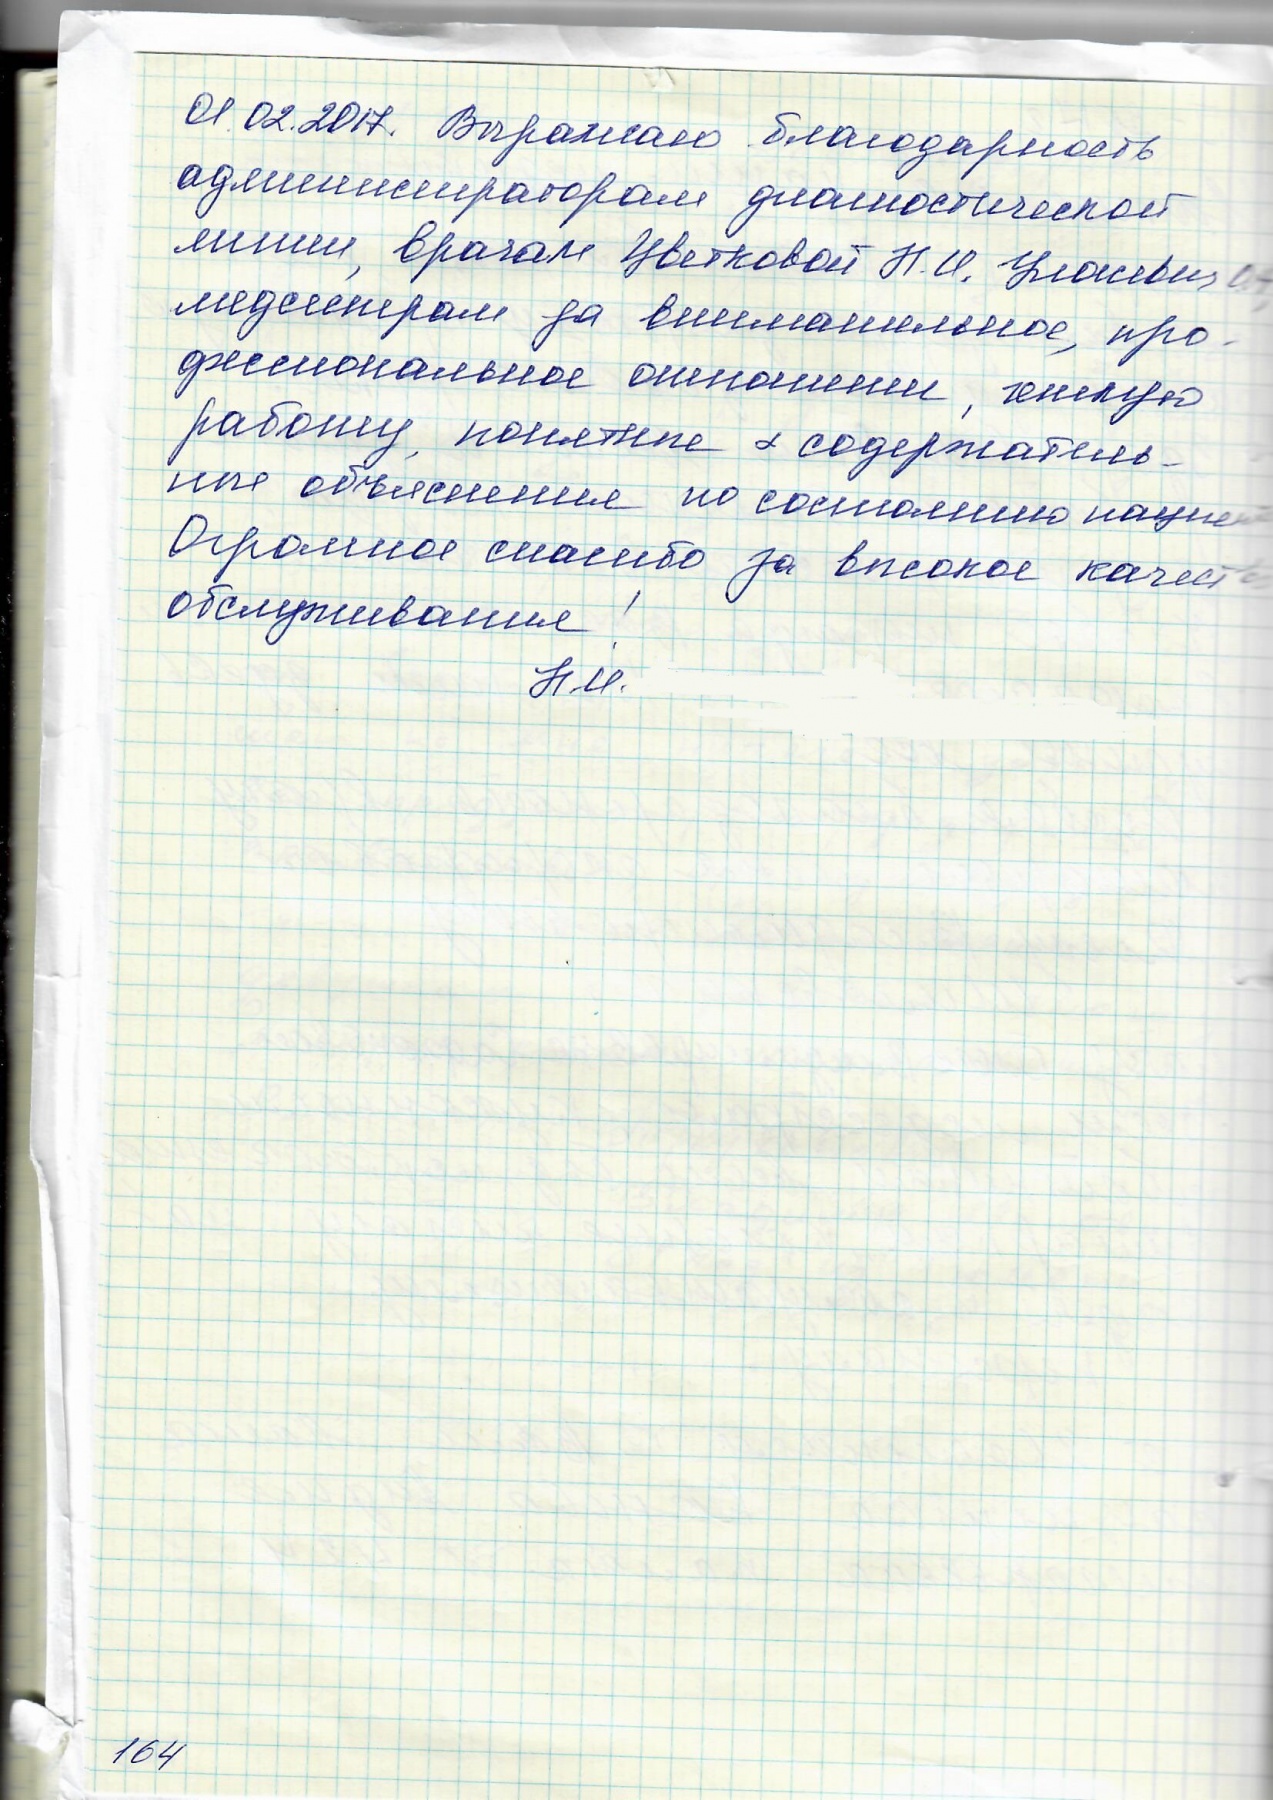 01.02.2017. Выражаю благодарность
администраторам диагностической
линии, врачам Цветковой Н.И.
медсестрам за внимательное, про-
фессиональное отношении, четкую
работу, понятные и содержатель-
ные объяснения по состоянию пациента
Огромное спасибо за высокое качество
обслуживания!
Н.И.
164